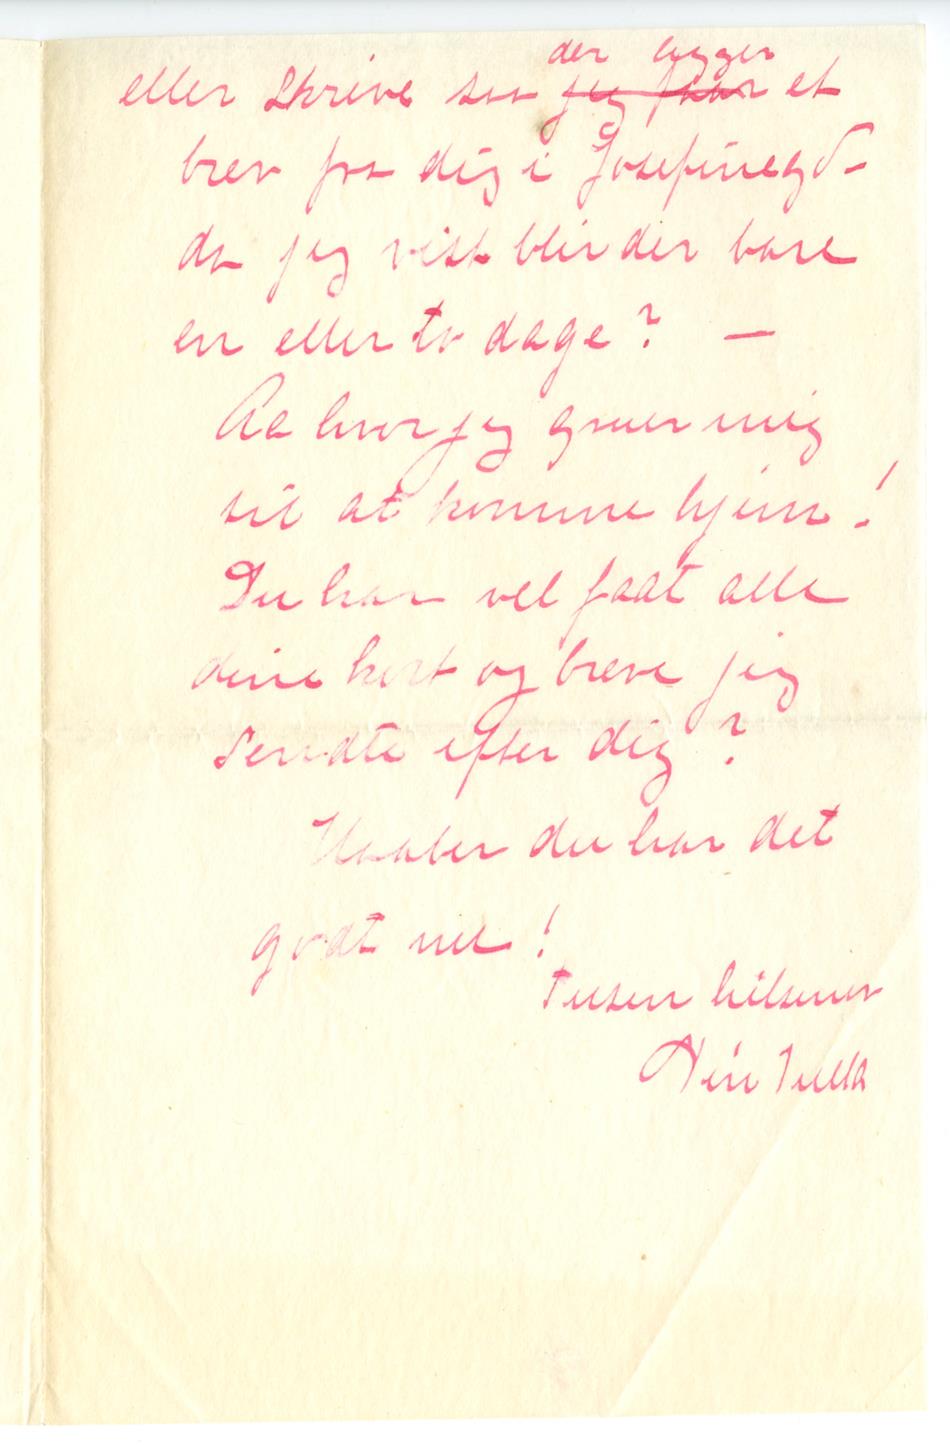 der ligger
eller skrive saa jeg faar et
brev fra dig i Josefinegd -
da jeg vist blir der bare
en eller to dage? —
Aa hvor jeg gruer mig
til at komme hjem!
Du har vel faat alle
dine kort og breve jeg
sendte efter dig?
Haaber du har det
godt nu!
Tusen hilsener
Din Tulla